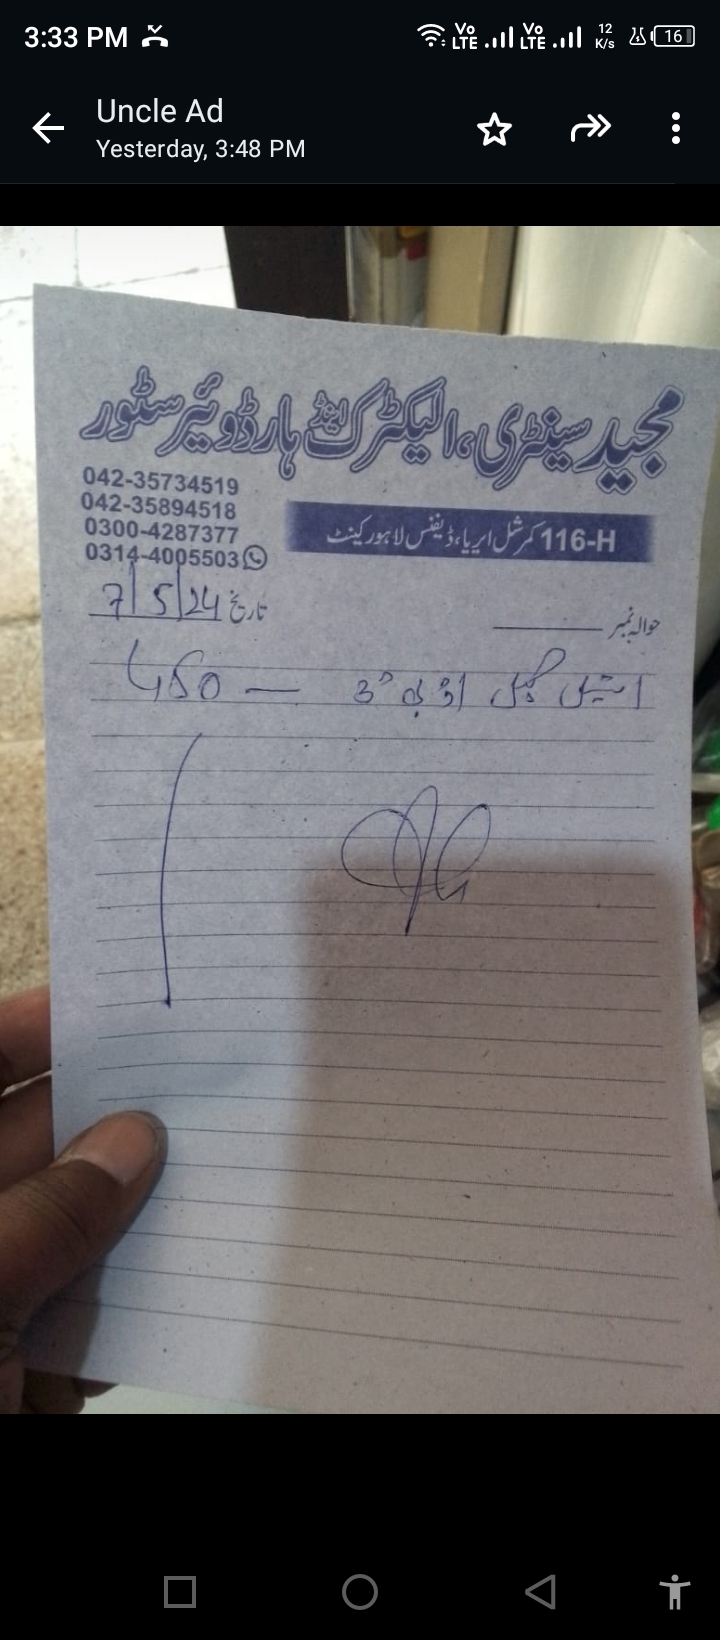 3:33 PM
Vo LTE Vo LTE 12 K/s 16
Uncle Ad
Yesterday, 3:48 PM
مجید سینٹری، الیکٹرک اینڈ ہارڈویئر سٹور
042-35734519
042-35894518
0300-4287377
0314-4005503
116-H کمرشل ایریا، ڈیفنس لاہور کینٹ
حوالہ نمبر
تاریخ 7/5/24
اسٹیل 3" — 450